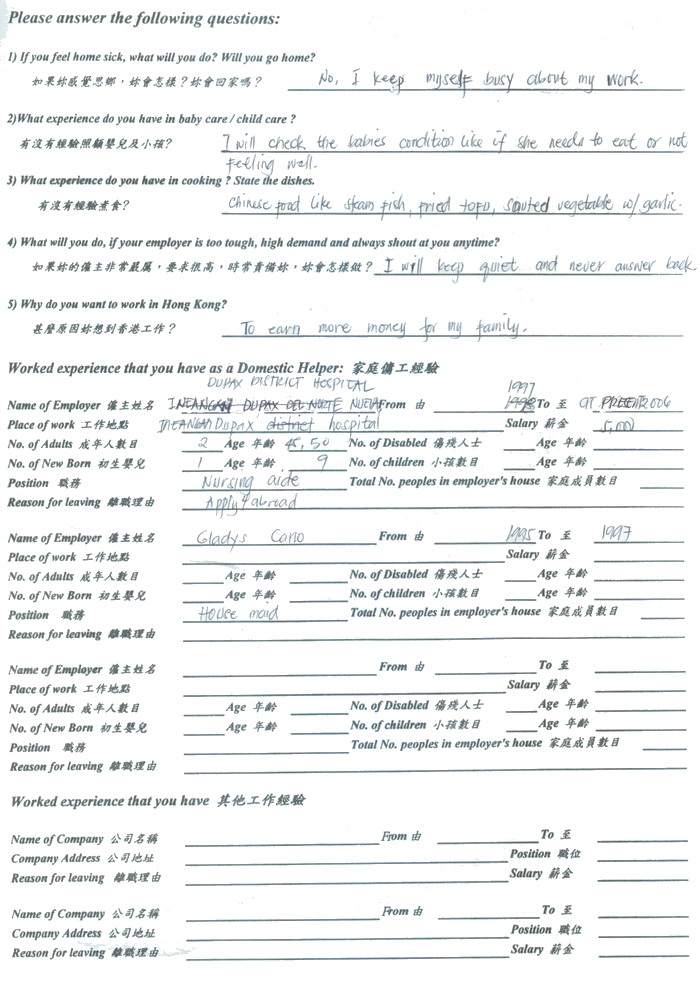 Please answer the following questions:
1) If you feel home sick, what will you do? Will you go home?
如果妳感覺思鄉，妳會怎樣？妳會回家嗎？ No, I keep myself busy about my work.
2)What experience do you have in baby care / child care ?
有沒有經驗照顧嬰兒及小孩? I will check the babies condition like if she needs to eat or not
feeling well.
3) What experience do you have in cooking ? State the dishes.
有沒有經驗煮食? Chinese food like steam fish, fried tofu, sauted vegetable w/ garlic.
4) What will you do, if your employer is too tough, high demand and always shout at you anytime?
如果妳的僱主非常嚴厲，要求很高，時常責備妳，妳會怎樣做？ I will keep quiet and never answer back.
5) Why do you want to work in Hong Kong?
甚麼原因妳想到香港工作？ To earn more money for my family.
Worked experience that you have as a Domestic Helper: 家庭傭工經驗
DUPAX DISTRICT HOSPITAL
1997
Name of Employer 僱主姓名 INEANGAN DUPAX DEL NORTE From 由 1998 To 至 2006
Place of work 工作地點 INEANGAN Dupax district hospital Salary 薪金 5,000
No. of Adults 成年人數目 2 Age 年齡 45, 50 No. of Disabled 傷殘人士 Age 年齡
No. of New Born 初生嬰兒 1 Age 年齡 9 No. of children 小孩數目 Age 年齡
Position 職務 Nursing aide Total No. peoples in employer's house 家庭成員數目
Reason for leaving 離職理由 Apply abroad
Name of Employer 僱主姓名 Gladys Cano From 由 1995 To 至 1997
Place of work 工作地點 Salary 薪金
No. of Adults 成年人數目 Age 年齡 No. of Disabled 傷殘人士 Age 年齡
No. of New Born 初生嬰兒 Age 年齡 No. of children 小孩數目 Age 年齡
Position 職務 House maid Total No. peoples in employer's house 家庭成員數目
Reason for leaving 離職理由
Name of Employer 僱主姓名 From 由 To 至
Place of work 工作地點 Salary 薪金
No. of Adults 成年人數目 Age 年齡 No. of Disabled 傷殘人士 Age 年齡
No. of New Born 初生嬰兒 Age 年齡 No. of children 小孩數目 Age 年齡
Position 職務 Total No. peoples in employer's house 家庭成員數目
Reason for leaving 離職理由
Worked experience that you have 其他工作經驗
Name of Company 公司名稱 From 由 To 至
Company Address 公司地址 Position 職位
Reason for leaving 離職理由 Salary 薪金
Name of Company 公司名稱 From 由 To 至
Company Address 公司地址 Position 職位
Reason for leaving 離職理由 Salary 薪金